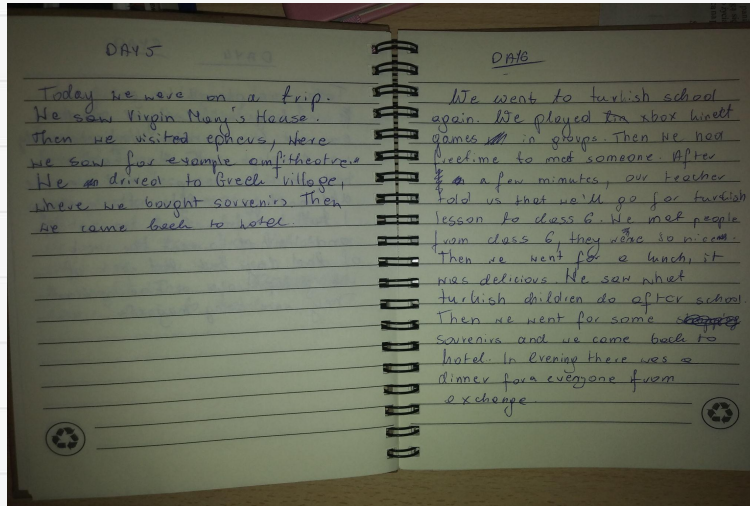 DAY 5
Today we were on a trip.
We saw Virgin Mary's House.
Then we visited epheus, Here
we saw for example amfitheatre.
We drived to Greek village,
where we bought souvenirs Then
we came back to hotel.
DAY6
We went to turkish school
again. We played xbox kinect
games in groups. Then we had
freetime to met someone. After
a few minutes, our teacher
told us that we'll go for turkish
lesson to class 6. We met people
from class 6, they were so nice.
Then we went for a lunch, it
was delicious. We saw what
turkish children do after school.
Then we went for some
souvenirs and we came back to
hotel. In evening there was a
dinner for a everyone from
exchange.